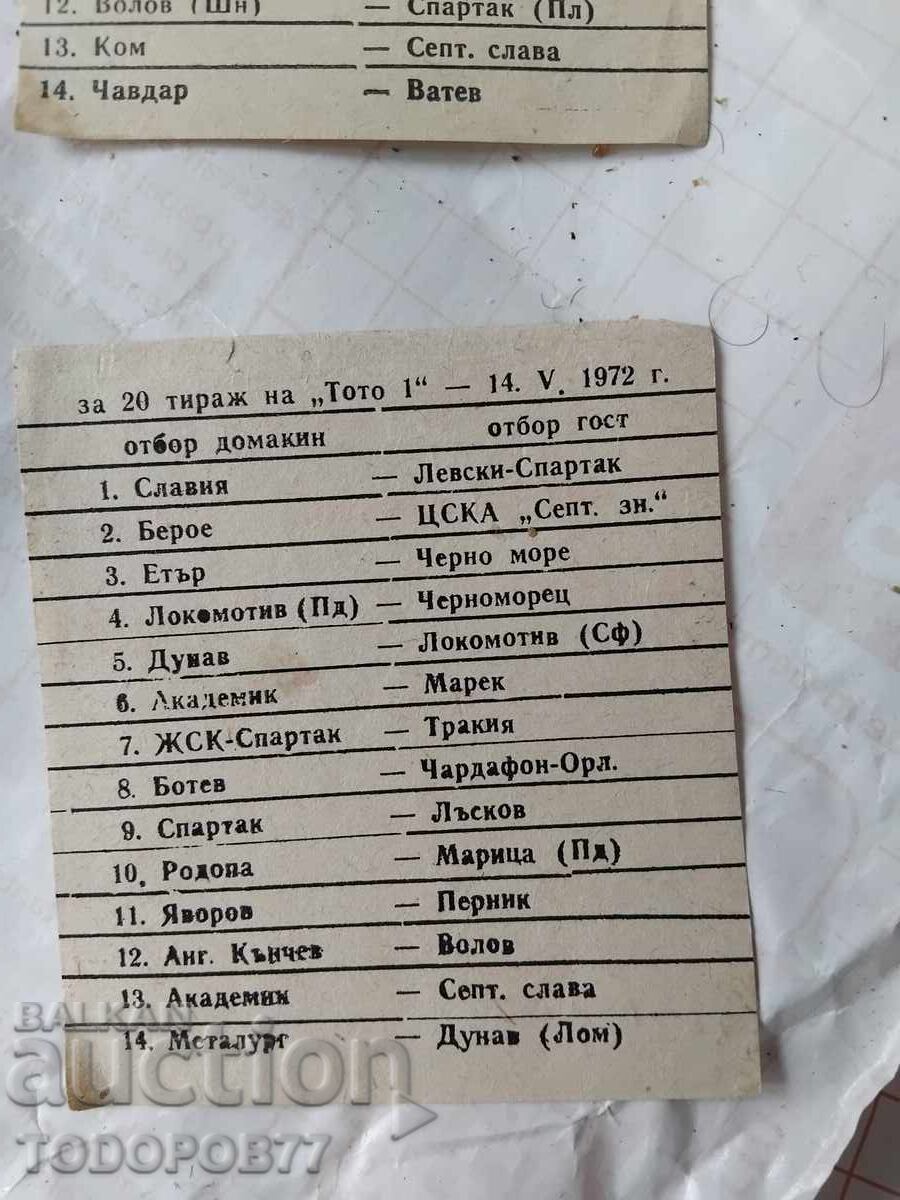 12. Волов (Шн) — Спартак (Пл)
13. Ком — Септ. слава
14. Чавдар — Ватев
за 20 тираж на „Тото 1“ — 14. V. 1972 г.
отбор домакин отбор гост
1. Славия — Левски-Спартак
2. Берое — ЦСКА „Септ. зн.“
3. Етър — Черно море
4. Локомотив (Пд) — Черноморец
5. Дунав — Локомотив (Сф)
6. Академик — Марек
7. ЖСК-Спартак — Тракия
8. Ботев — Чардафон-Орл.
9. Спартак — Лъсков
10. Родопа — Марица (Пд)
11. Яворов — Перник
12. Анг. Кънчев — Волов
13. Академик — Септ. слава
14. Металург — Дунав (Лом)
BALKAN
auction
TODOROB77